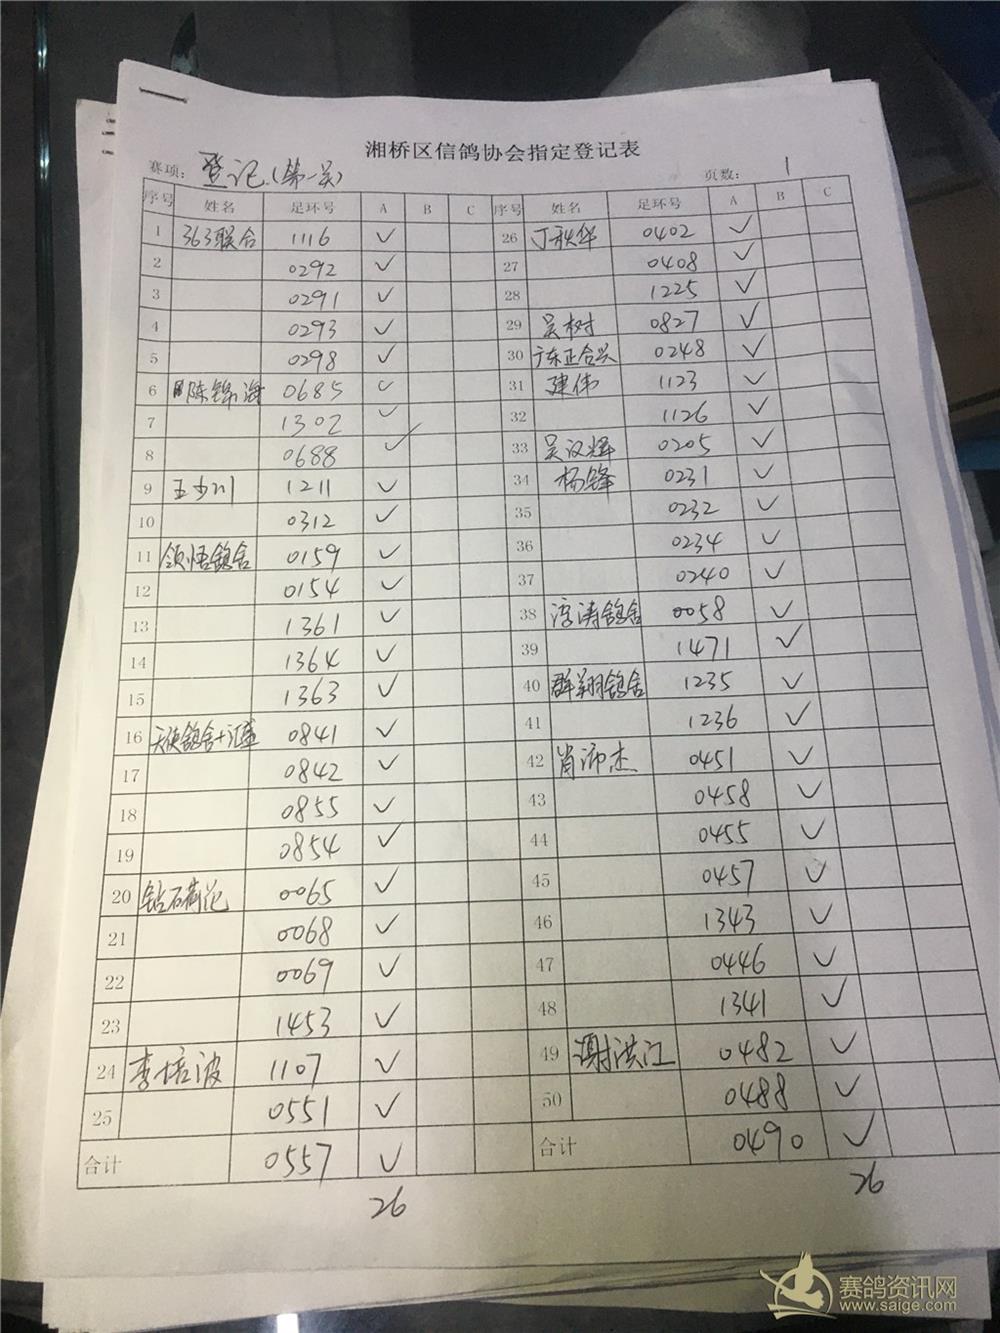 湘桥区信鸽协会指定登记表
赛项: 登记(第一关) 页数: 1
序号 姓名 足环号 A B C 序号 姓名 足环号 A B C
1 363联合 1116 ✓ 26 丁秋华 0402 ✓
2 0292 ✓ 27 0408 ✓
3 0291 ✓ 28 1225 ✓
4 0293 ✓ 29 吴树 0827 ✓
5 0298 ✓ 30 广东正合兴 0248 ✓
6 陈锦海 0685 ✓ 31 建伟 1123 ✓
7 1302 ✓ 32 1126 ✓
8 0688 ✓ 33 吴汉辉 0205 ✓
9 王少川 1211 ✓ 34 杨锋 0231 ✓
10 0312 ✓ 35 0232 ✓
11 领悟鸽舍 0159 ✓ 36 0234 ✓
12 0154 ✓ 37 0240 ✓
13 1361 ✓ 38 淳涛鸽舍 0058 ✓
14 1364 ✓ 39 1471 ✓
15 1363 ✓ 40 群翔鸽舍 1235 ✓
16 天使鸽舍+汇盛 0841 ✓ 41 1236 ✓
17 0842 ✓ 42 肖沛杰 0451 ✓
18 0855 ✓ 43 0458 ✓
19 0854 ✓ 44 0455 ✓
20 钻石荷花 0065 ✓ 45 0457 ✓
21 0068 ✓ 46 1343 ✓
22 0069 ✓ 47 0446 ✓
23 1453 ✓ 48 1341 ✓
24 李培波 1107 ✓ 49 谢洪江 0482 ✓
25 0551 ✓ 50 0488 ✓
合计 0557 ✓ 合计 0490 ✓
26 26
赛鸽资讯网
www.saige.com